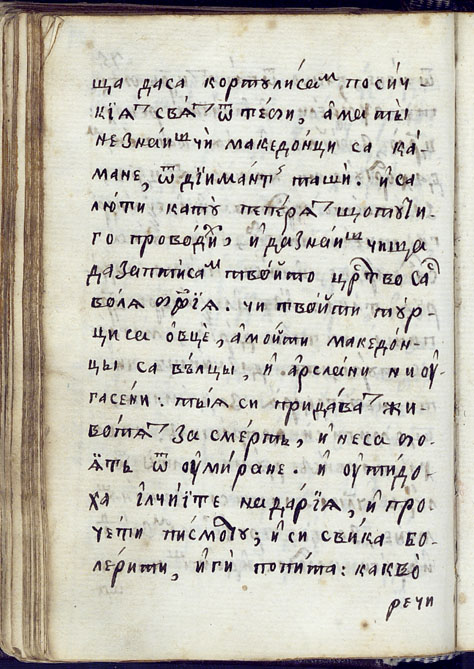 ща даса кортули́саᲆ поси́ч
кїѧᲅ свѣᲅ ѿ тебѧ, а҆ма ты̀
незна́иш чѝ македо́нци са ка́
мане, ѿ дїимант ташѝ. и҆са
лю́ти кату̀ пепе́рѧ щотꙋгѝ
го прово́ди, и҆ дазна́иш чища
дазапти́сам твои҆то црⷭ҇тво са
во́лѧ бж҃їѧ. чи твои҆ти тꙋ́р
циса ѻ҆вце̏, а҆мои҆ти македо́н
цы са въ́лцы, и҆ а҆рсла́ни ниꙋ
гасе́ни: ты́ѧ си прида́ват жи
во́тѧт за сме́рть, и҆ неса бо
ѧ́тъ ѿ ᲂу҆ми́ране. и҆ ᲂу҆тидо́
ха и҆лчїи́те на да́рїѧ, и҆ про
че́ти писмо́то, и҆ си сви́ка бо
ле́рити, и҆ гѝ попи́та: какво̀
речи